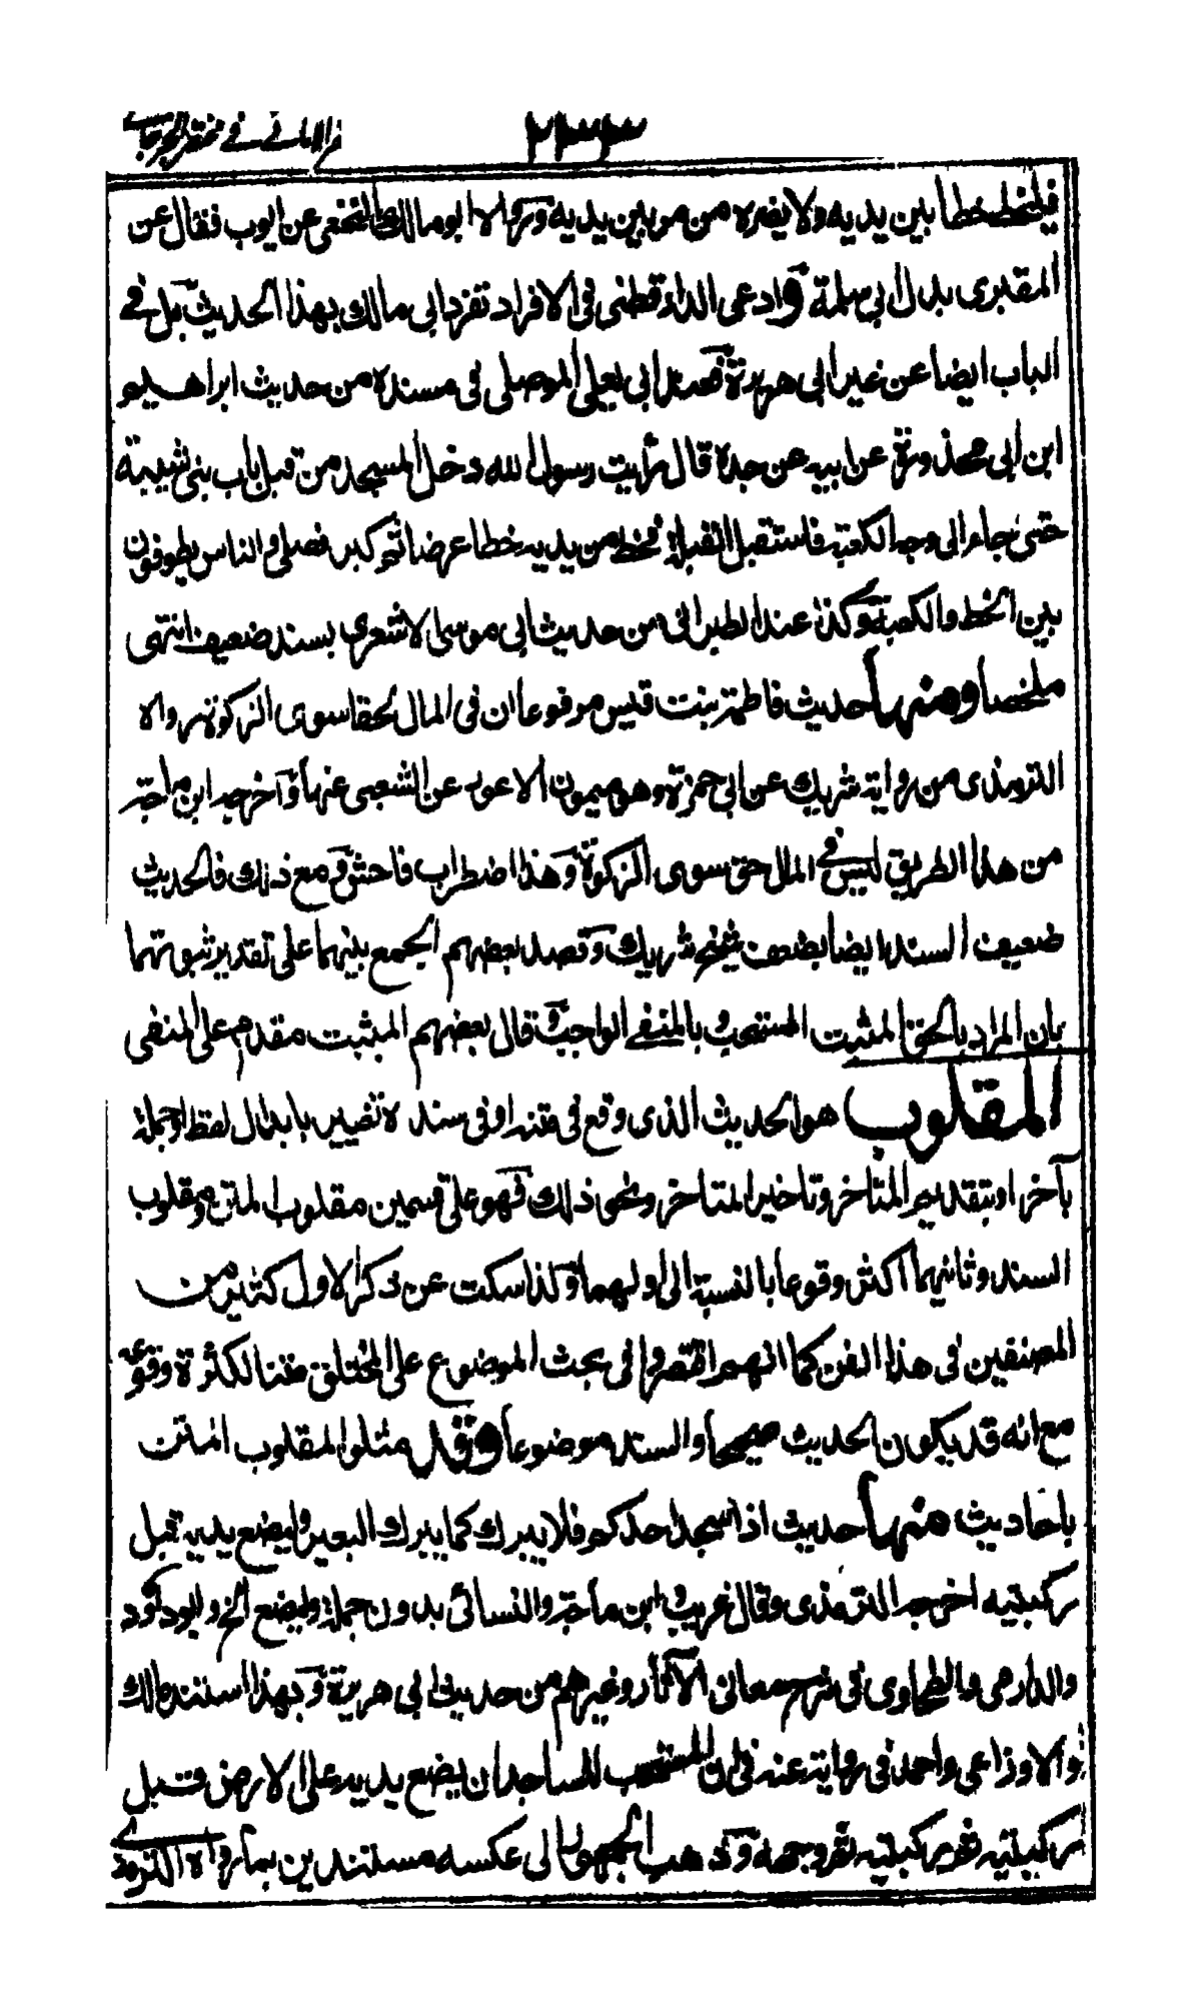 ظفر الاماني في مختصر الجرجاني
٢٣٣
فليخط خطا بين يديه ولا يضره من مر بين يديه ورواه ابو مالك النخعي عن ايوب فقال عن
المقبرى بدل ابي سلمة وادعى الدارقطنى فى الافراد تفرد ابى مالك بهذا الحديث بل في
الباب ايضا عن غير ابى هريرة فعند ابى يعلى الموصلى فى مسنده من حديث ابراهيم
ابن ابى محذورة عن ابيه عن جده قال رأيت رسول الله دخل المسجد من قبل باب بنى شيبة
حتى جاء الى وجه الكعبة فاستقبل القبلة فخط من بين يديه خطا عرضا ثم كبر فصلى والناس يطوفون
بين الخط والكعبة وكذا عند الطبرانى من حديث ابى موسى الاشعرى بسند ضعيف انتهى
ملخصا ومنها حديث فاطمة بنت قيس مرفوعا ان فى المال لحقا سوى الزكوة رواه
الترمذى من رواية شريك عن ابى حمزة وهو ميمون الاعور عن الشعبى عنها وآخرجه ابن ماجة
من هذا الطريق ليس في المال حق سوى الزكوة وهذا اضطراب فاحش ومع ذلك فالحديث
ضعيف السند ايضا لضعف شيخ شريك وقصد بعضهم الجمع بينهما على تقدير ثبوتهما
بان المراد بالحق المثبت المستحب وبالمنفى الواجب وقال بعضهم المثبت مقدم على المنفى
المقلوب هو الحديث الذى وقع فى متنه او فى سنده تغيير بابدال لفظ او جملة
بآخر او بتقديم المتاخر وتاخير المتاخر ونحو ذلك فهو على قسمين مقلوب المتن ومقلوب
السند وثانيهما اكثر وقوعا بالنسبة الى اولهما ولذا سكت عن ذكر الاول كثير من
المصنفين فى هذا الفن كما انهم اقتصروا فى بحث الموضوع على المختلق متنا لكثرة وقوعه
مع انه قد يكون الحديث صحيحا والسند موضوعا وقد مثلوا المقلوب المتن
باحاديث منها حديث اذا سجد احدكم فلا يبرك كما يبرك البعير وليضع يديه قبل
ركبتيه اخرجه الترمذى وقال غريب وابن ماجة والنسائى بدون جملة وليضع الخ وابو داود
والدارمى والطحاوى فى شرح معانى الآثار وغيرهم من حديث ابى هريرة وبهذا استند مالك
والاوزاعى واحمد فى رواية عنه فى ان المستحب للساجد ان يضع يديه على الارض قبل
ركبتيه ثم ركبتيه ثم وجهه وذهب الجمهور الى عكسه مستندين بما رواه الترمذي